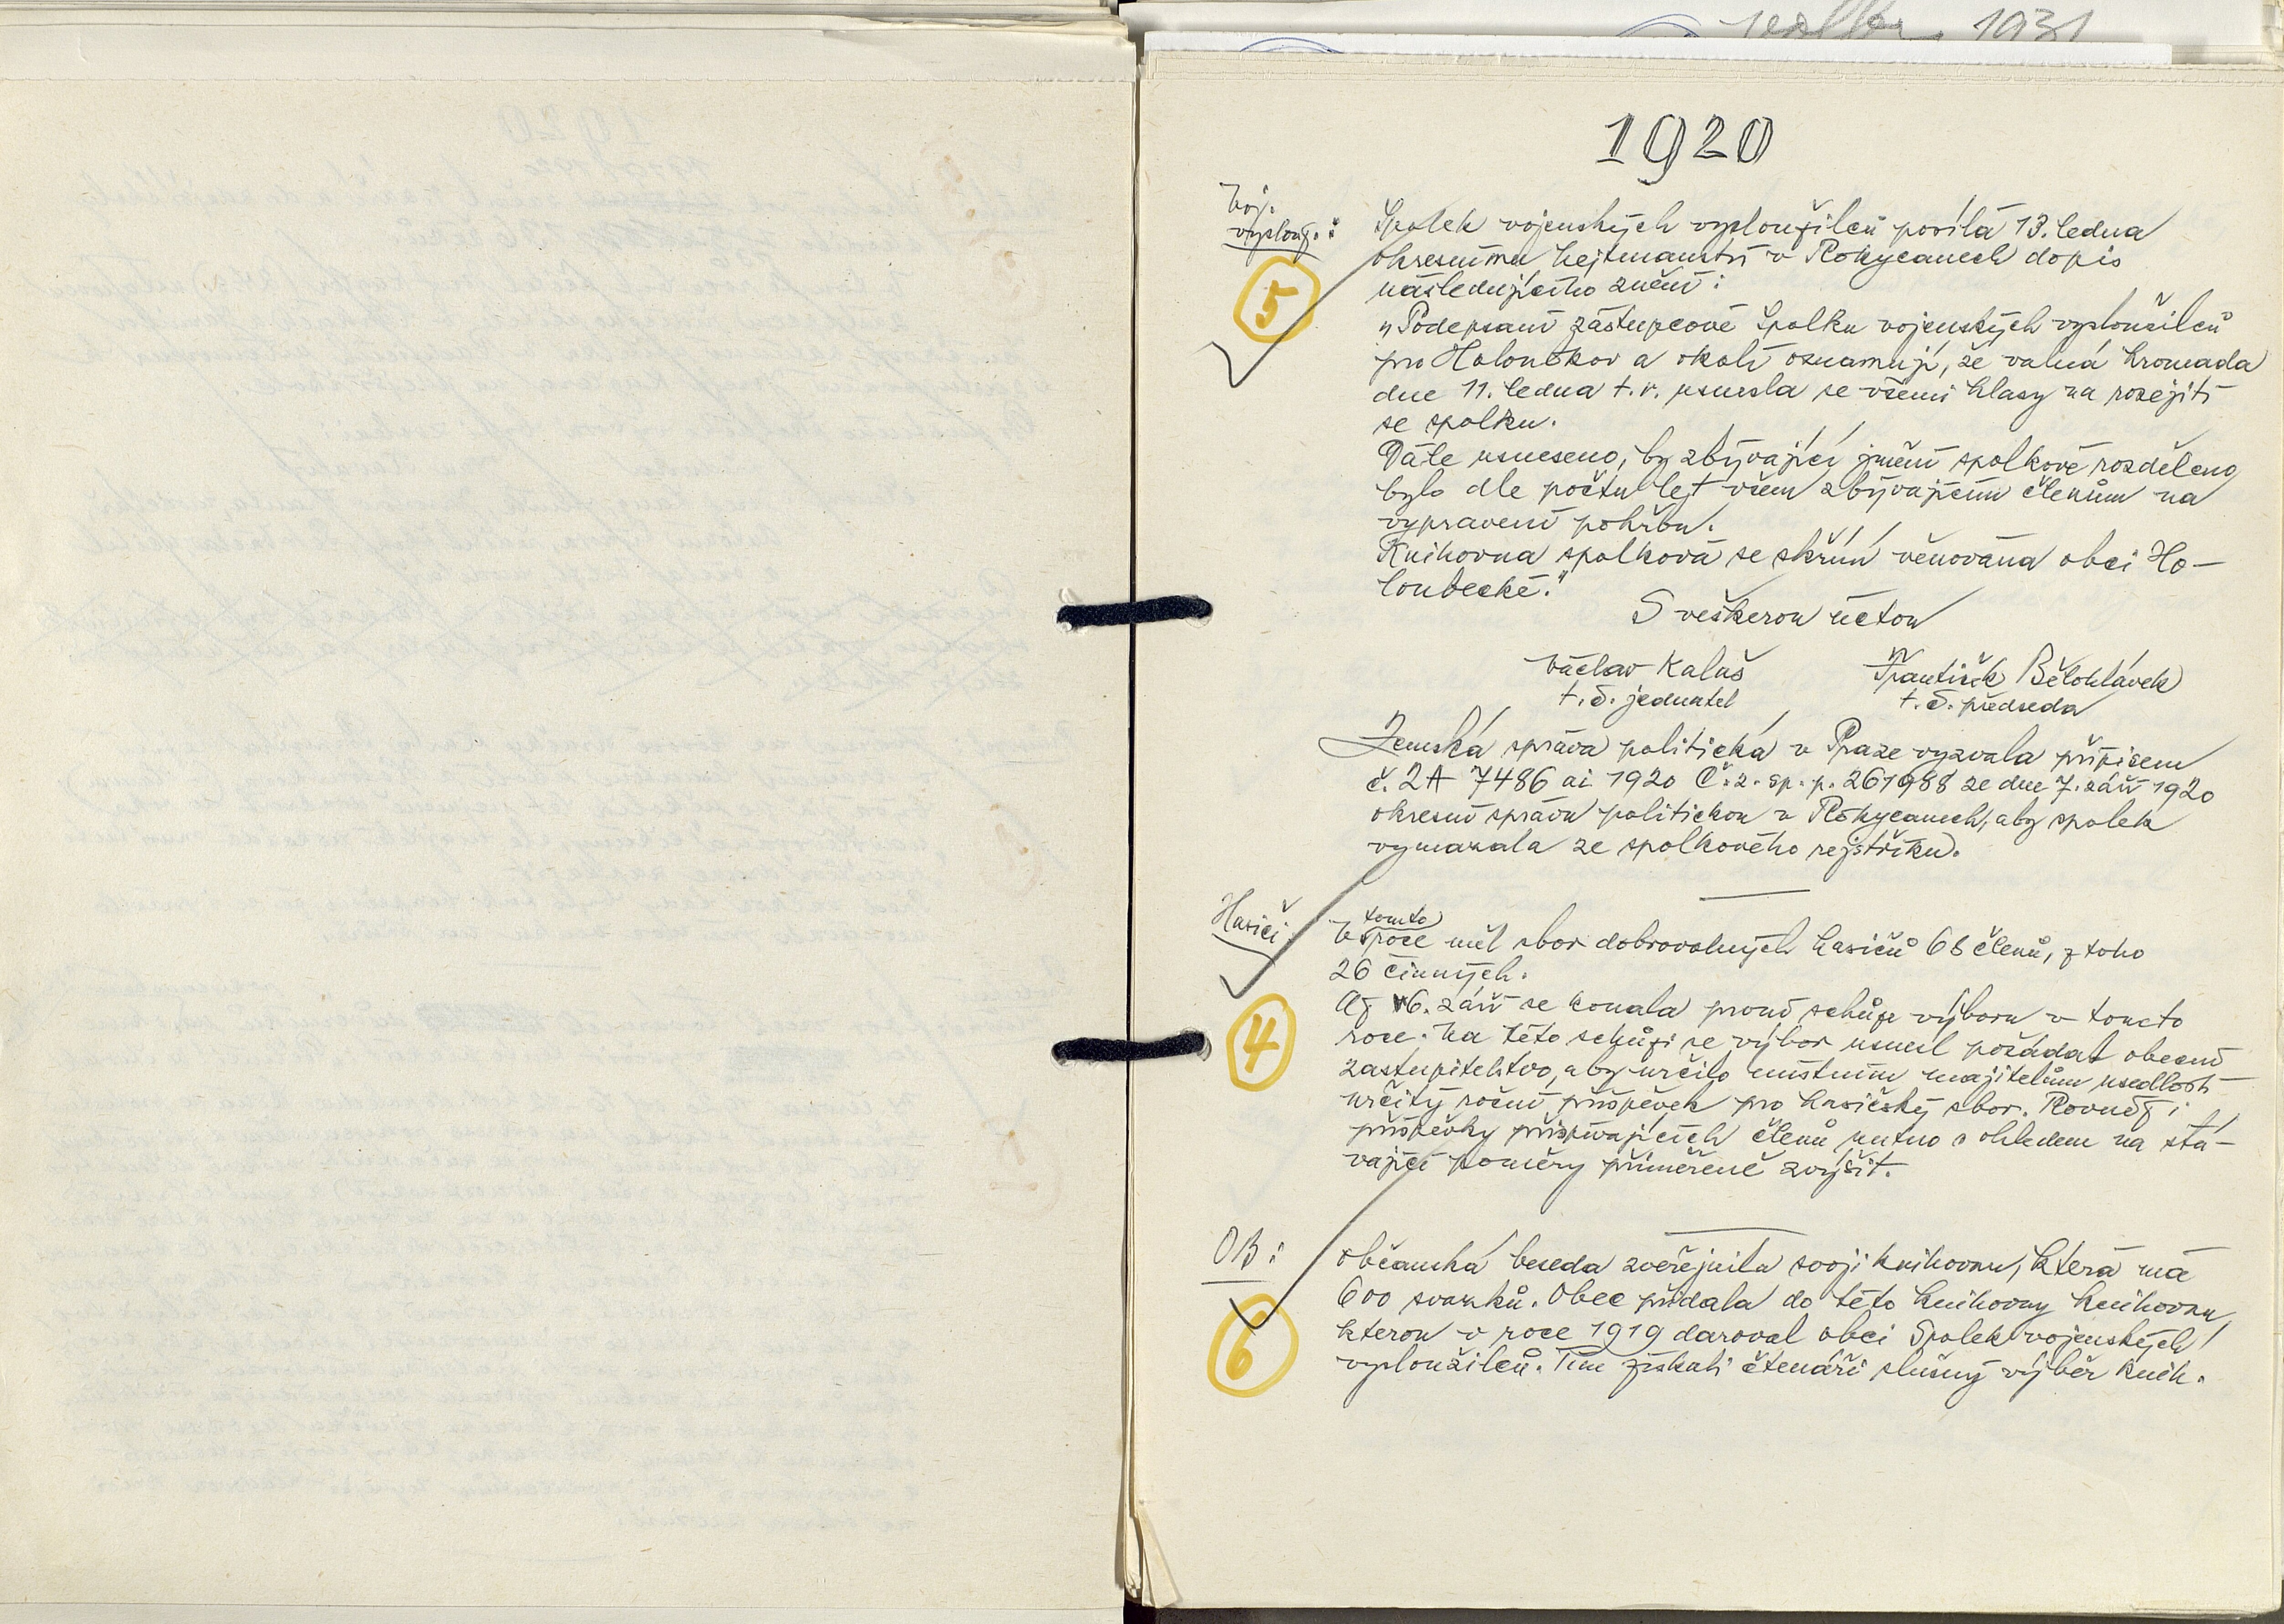 1931
1920
Voj.
vyslouž.:
Spolek vojenských vysloužilců posílá 13. ledna
okresnímu hejtmanství v Rokycanech dopis
následujícího znění:
„Podepsaní zástupcové Spolku vojenských vysloužilců
pro Holoubkov a okolí oznamují, že valná hromada
dne 11. ledna t.r. usnesla se všemi hlasy na rozejití
se spolku.
Dále usneseno, by zbývající jmění spolkové rozděleno
bylo dle počtu let všem zbývajícím členům na
vypravení pohřbu.
Knihovna spolková se skříní věnována obci Ho-
loubecké."
S veškerou úctou
Václav Kaluš
František Bělohlávek
t. č. jednatel
t. č. předseda
5
Zemská správa politická v Praze vyzvala přípisem
č. 2A 7486 ai 1920 Č. z. sp. p. 261988 ze dne 7. září 1920
okresní správu politickou v Rokycanech, aby spolek
vymazala ze spolkového rejstříku.
Hasiči
tomto
V roce měl sbor dobrovolných hasičů 68 členů, z toho
26 činných.
4
Až 6. září se konala první schůze výboru v tomto
roce. Na této schůzi se výbor usnesl požádat obecní
zastupitelstvo, aby určilo místním majitelům usedlostí
určitý roční příspěvek pro hasičský sbor. Rovněž i
příspěvky přispívajících členů nutno s ohledem na stá-
vající poměry přiměřeně zvýšit.
OB:
Občanská beseda zveřejnila svoji knihovnu, která má
600 svazků. Obec přidala do této knihovny knihovnu,
kterou v roce 1919 daroval obci Spolek vojenských
vysloužilců. Tím získali čtenáři slušný výběr knih.
6